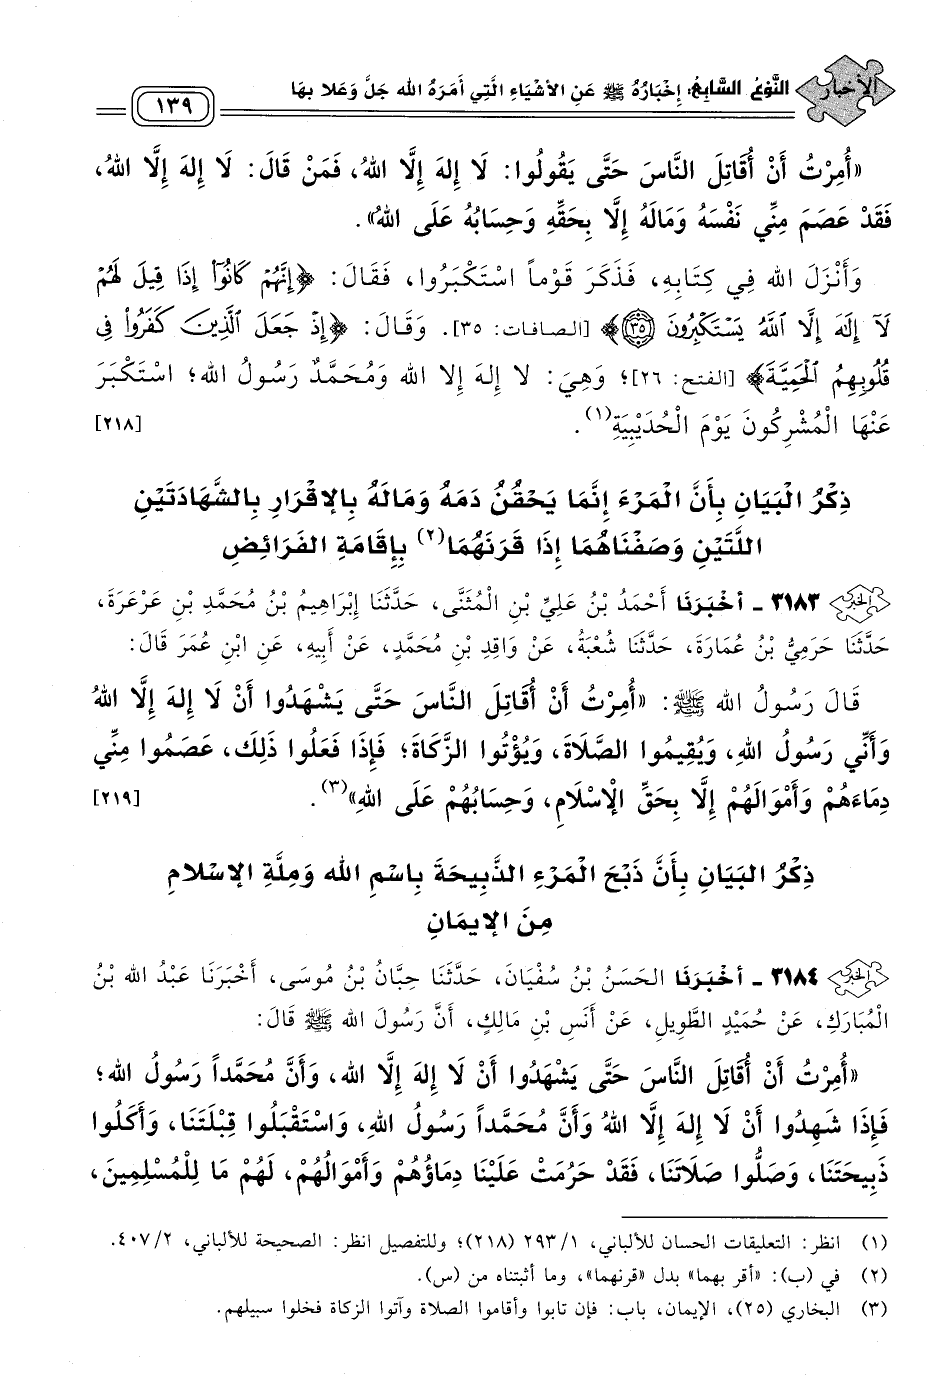 الأخبار
النَّوْعُ السَّابِعُ: إِخْبَارُهُ ﷺ عَنِ الأَشْيَاءِ الَّتِي أَمَرَهُ الله جَلَّ وَعَلا بِهَا
١٣٩
«أُمِرْتُ أَنْ أُقَاتِلَ النَّاسَ حَتَّى يَقُولُوا: لَا إِلهَ إِلَّا اللهُ، فَمَنْ قَالَ: لَا إِلهَ إِلَّا اللهُ،
فَقَدْ عَصَمَ مِنِّي نَفْسَهُ وَمَالَهُ إِلَّا بِحَقِّهِ وَحِسَابُهُ عَلَى اللهُ».
وَأَنْزَلَ الله فِي كِتَابِهِ، فَذَكَرَ قَوْماً اسْتَكْبَرُوا، فَقَالَ: ﴿إِنَّهُمْ كَانُوٓا۟ إِذَا قِيلَ لَهُمْ
لَآ إِلَٰهَ إِلَّا ٱللَّهُ يَسْتَكْبِرُونَ ٣٥﴾ [الصافات: ٣٥]. وَقَالَ: ﴿إِذْ جَعَلَ ٱلَّذِينَ كَفَرُوا۟ فِى
قُلُوبِهِمُ ٱلْحَمِيَّةَ﴾ [الفتح: ٢٦]؛ وَهِيَ: لا إِلهَ إِلا الله وَمُحَمَّدٌ رَسُولُ الله؛ اسْتَكْبَرَ
عَنْهَا الْمُشْرِكُونَ يَوْمَ الْحُدَيْبِيَةِ(١). [٢١٨]
ذِكْرُ الْبَيَانِ بِأَنَّ الْمَرْءَ إِنَّمَا يَحْقُنُ دَمَهُ وَمَالَهُ بِالإِقْرَارِ بِالشَّهَادَتَيْنِ
اللَّتَيْنِ وَصَفْنَاهُمَا إِذَا قَرَنَهُمَا(٢) بِإِقَامَةِ الْفَرَائِضِ
الخبر ٣١٨٣ - أَخْبَرَنَا أَحْمَدُ بْنُ عَلِيِّ بْنِ الْمُثَنَّى، حَدَّثَنَا إِبْرَاهِيمُ بْنُ مُحَمَّدِ بْنِ عَرْعَرَةَ،
حَدَّثَنَا حَرَمِيُّ بْنُ عُمَارَةَ، حَدَّثَنَا شُعْبَةُ، عَنْ وَاقِدِ بْنِ مُحَمَّدٍ، عَنْ أَبِيهِ، عَنِ ابْنِ عُمَرَ قَالَ:
قَالَ رَسُولُ الله ﷺ: «أُمِرْتُ أَنْ أُقَاتِلَ النَّاسَ حَتَّى يَشْهَدُوا أَنْ لَا إِلهَ إِلَّا اللهُ
وَأَنِّي رَسُولُ اللهِ، وَيُقِيمُوا الصَّلَاةَ، وَيُؤْتُوا الزَّكَاةَ؛ فَإِذَا فَعَلُوا ذَلِكَ، عَصَمُوا مِنِّي
دِمَاءَهُمْ وَأَمْوَالَهُمْ إِلَّا بِحَقِّ الْإِسْلَامِ، وَحِسَابُهُمْ عَلَى اللهِ»(٣). [٢١٩]
ذِكْرُ البَيَانِ بِأَنَّ ذَبْحَ الْمَرْءِ الذَّبِيحَةَ بِاسْمِ الله وَمِلَّةِ الإِسْلامِ
مِنَ الإِيمَانِ
الخبر ٣١٨٤ - أَخْبَرَنَا الحَسَنُ بْنُ سُفْيَانَ، حَدَّثَنَا حِبَّانُ بْنُ مُوسَى، أَخْبَرَنَا عَبْدُ الله بْنُ
الْمُبَارَكِ، عَنْ حُمَيْدٍ الطَّوِيلِ، عَنْ أَنَسِ بْنِ مَالِكٍ، أَنَّ رَسُولَ الله ﷺ قَالَ:
«أُمِرْتُ أَنْ أُقَاتِلَ النَّاسَ حَتَّى يَشْهَدُوا أَنْ لَا إِلَهَ إِلَّا الله، وَأَنَّ مُحَمَّداً رَسُولُ الله؛
فَإِذَا شَهِدُوا أَنْ لَا إِلهَ إِلَّا اللهُ وَأَنَّ مُحَمَّداً رَسُولُ اللهِ، وَاسْتَقْبَلُوا قِبْلَتَنَا، وَأَكَلُوا
ذَبِيحَتَنَا، وَصَلُّوا صَلَاتَنَا، فَقَدْ حَرُمَتْ عَلَيْنَا دِمَاؤُهُمْ وَأَمْوَالُهُمْ، لَهُمْ مَا لِلْمُسْلِمِينَ،
(١) انظر: التعليقات الحسان للألباني، ٢٩٣/١ (٢١٨)؛ وللتفصيل انظر: الصحيحة للألباني، ٤٠٧/٢.
(٢) في (ب): «أقر بهما» بدل «قرنهما»، وما أثبتناه من (س).
(٣) البخاري (٢٥)، الإيمان، باب: فإن تابوا وأقاموا الصلاة وآتوا الزكاة فخلوا سبيلهم.